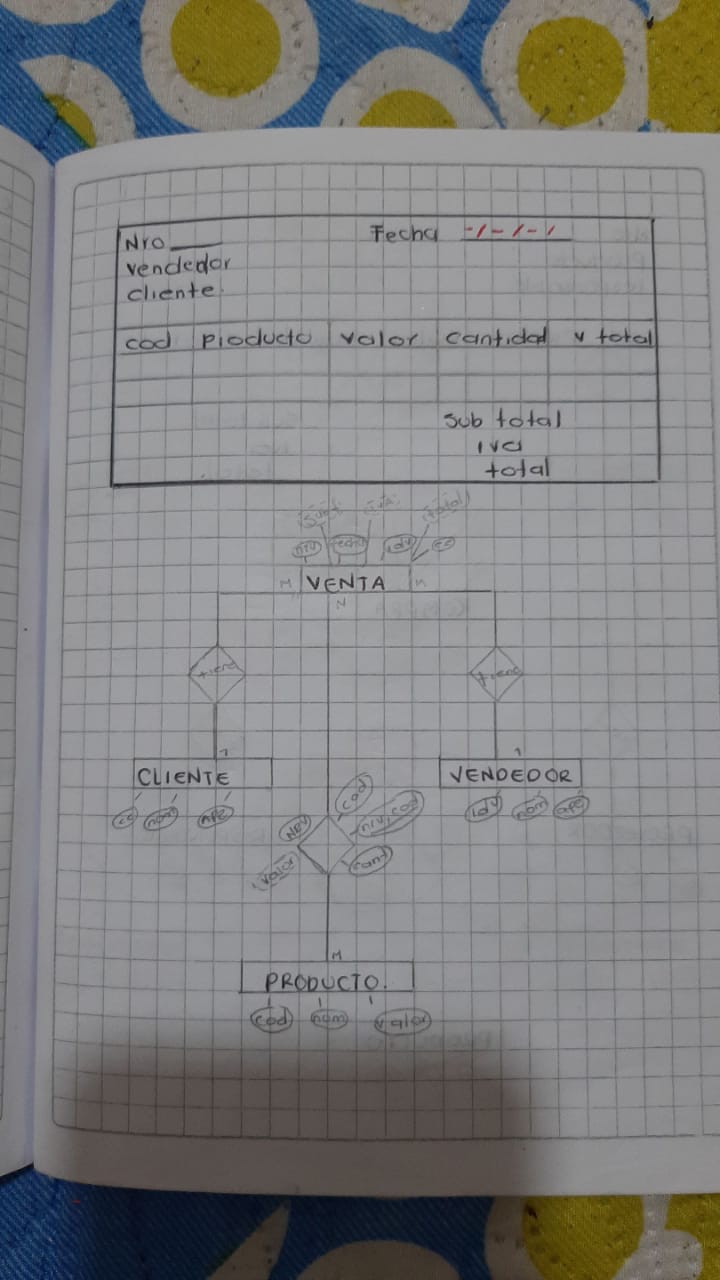 Nro ____ Fecha -/-/-/
vendedor
cliente.
cod producto valor cantidad v total
sub total
iva
total
Subt iva total
nrv fecha idv cc
M VENTA M
N
tiene tiene
1 1
CLIENTE VENDEDOR
cc nom ape idv nom ape
cod
nrv nrv, cod
valor cant
M
PRODUCTO.
cod nom valor